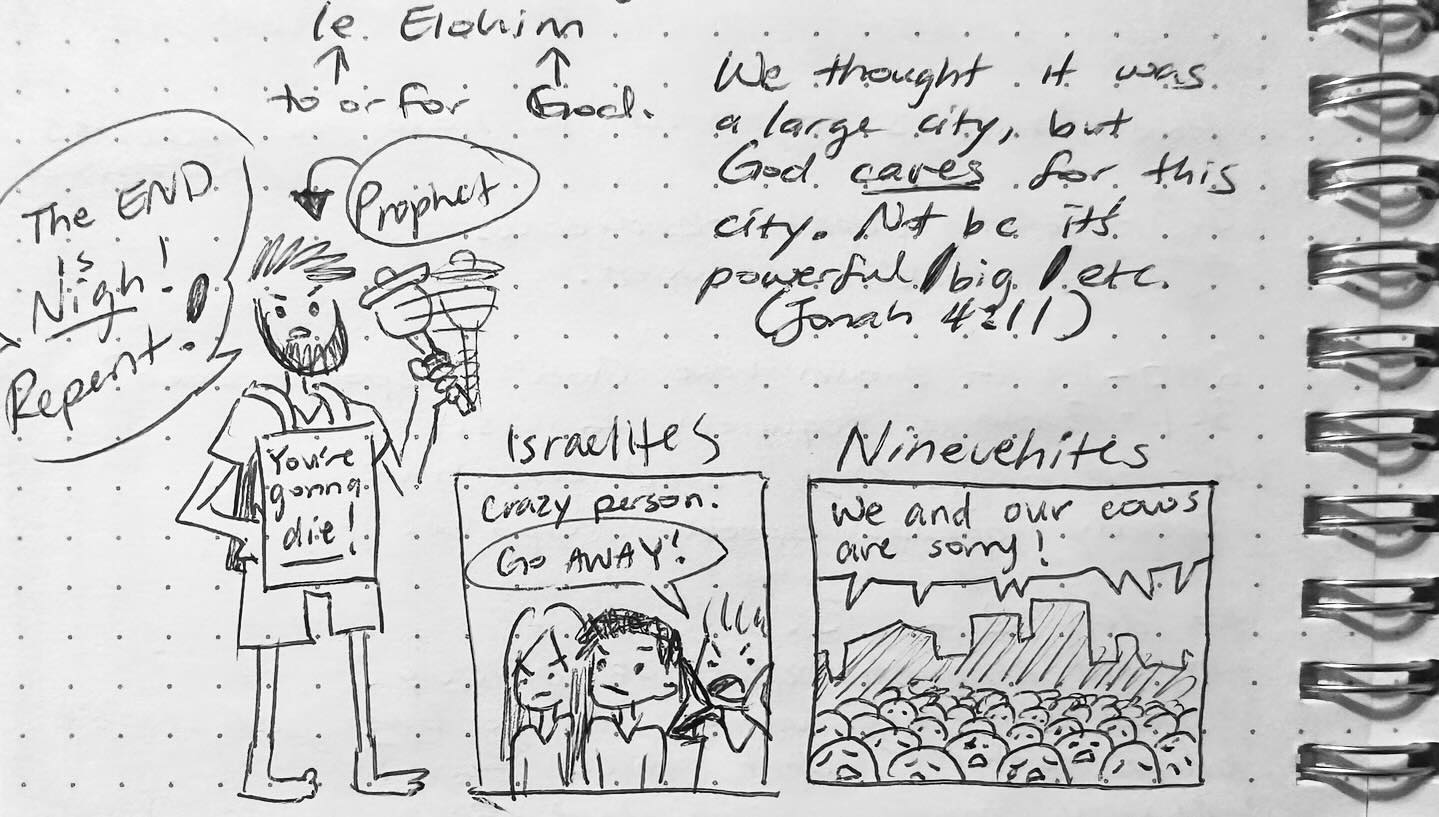 le Elohim
to or for God.
We thought it was
a large city, but
God cares for this
city. Not bc it's
powerful/big/etc.
(Jonah 4:11)
Prophet
The END
is
Nigh!
Repent!
You're
gonna
die!
Israelites
Crazy person.
Go AWAY!
Ninevehites
We and our cows
are sorry!